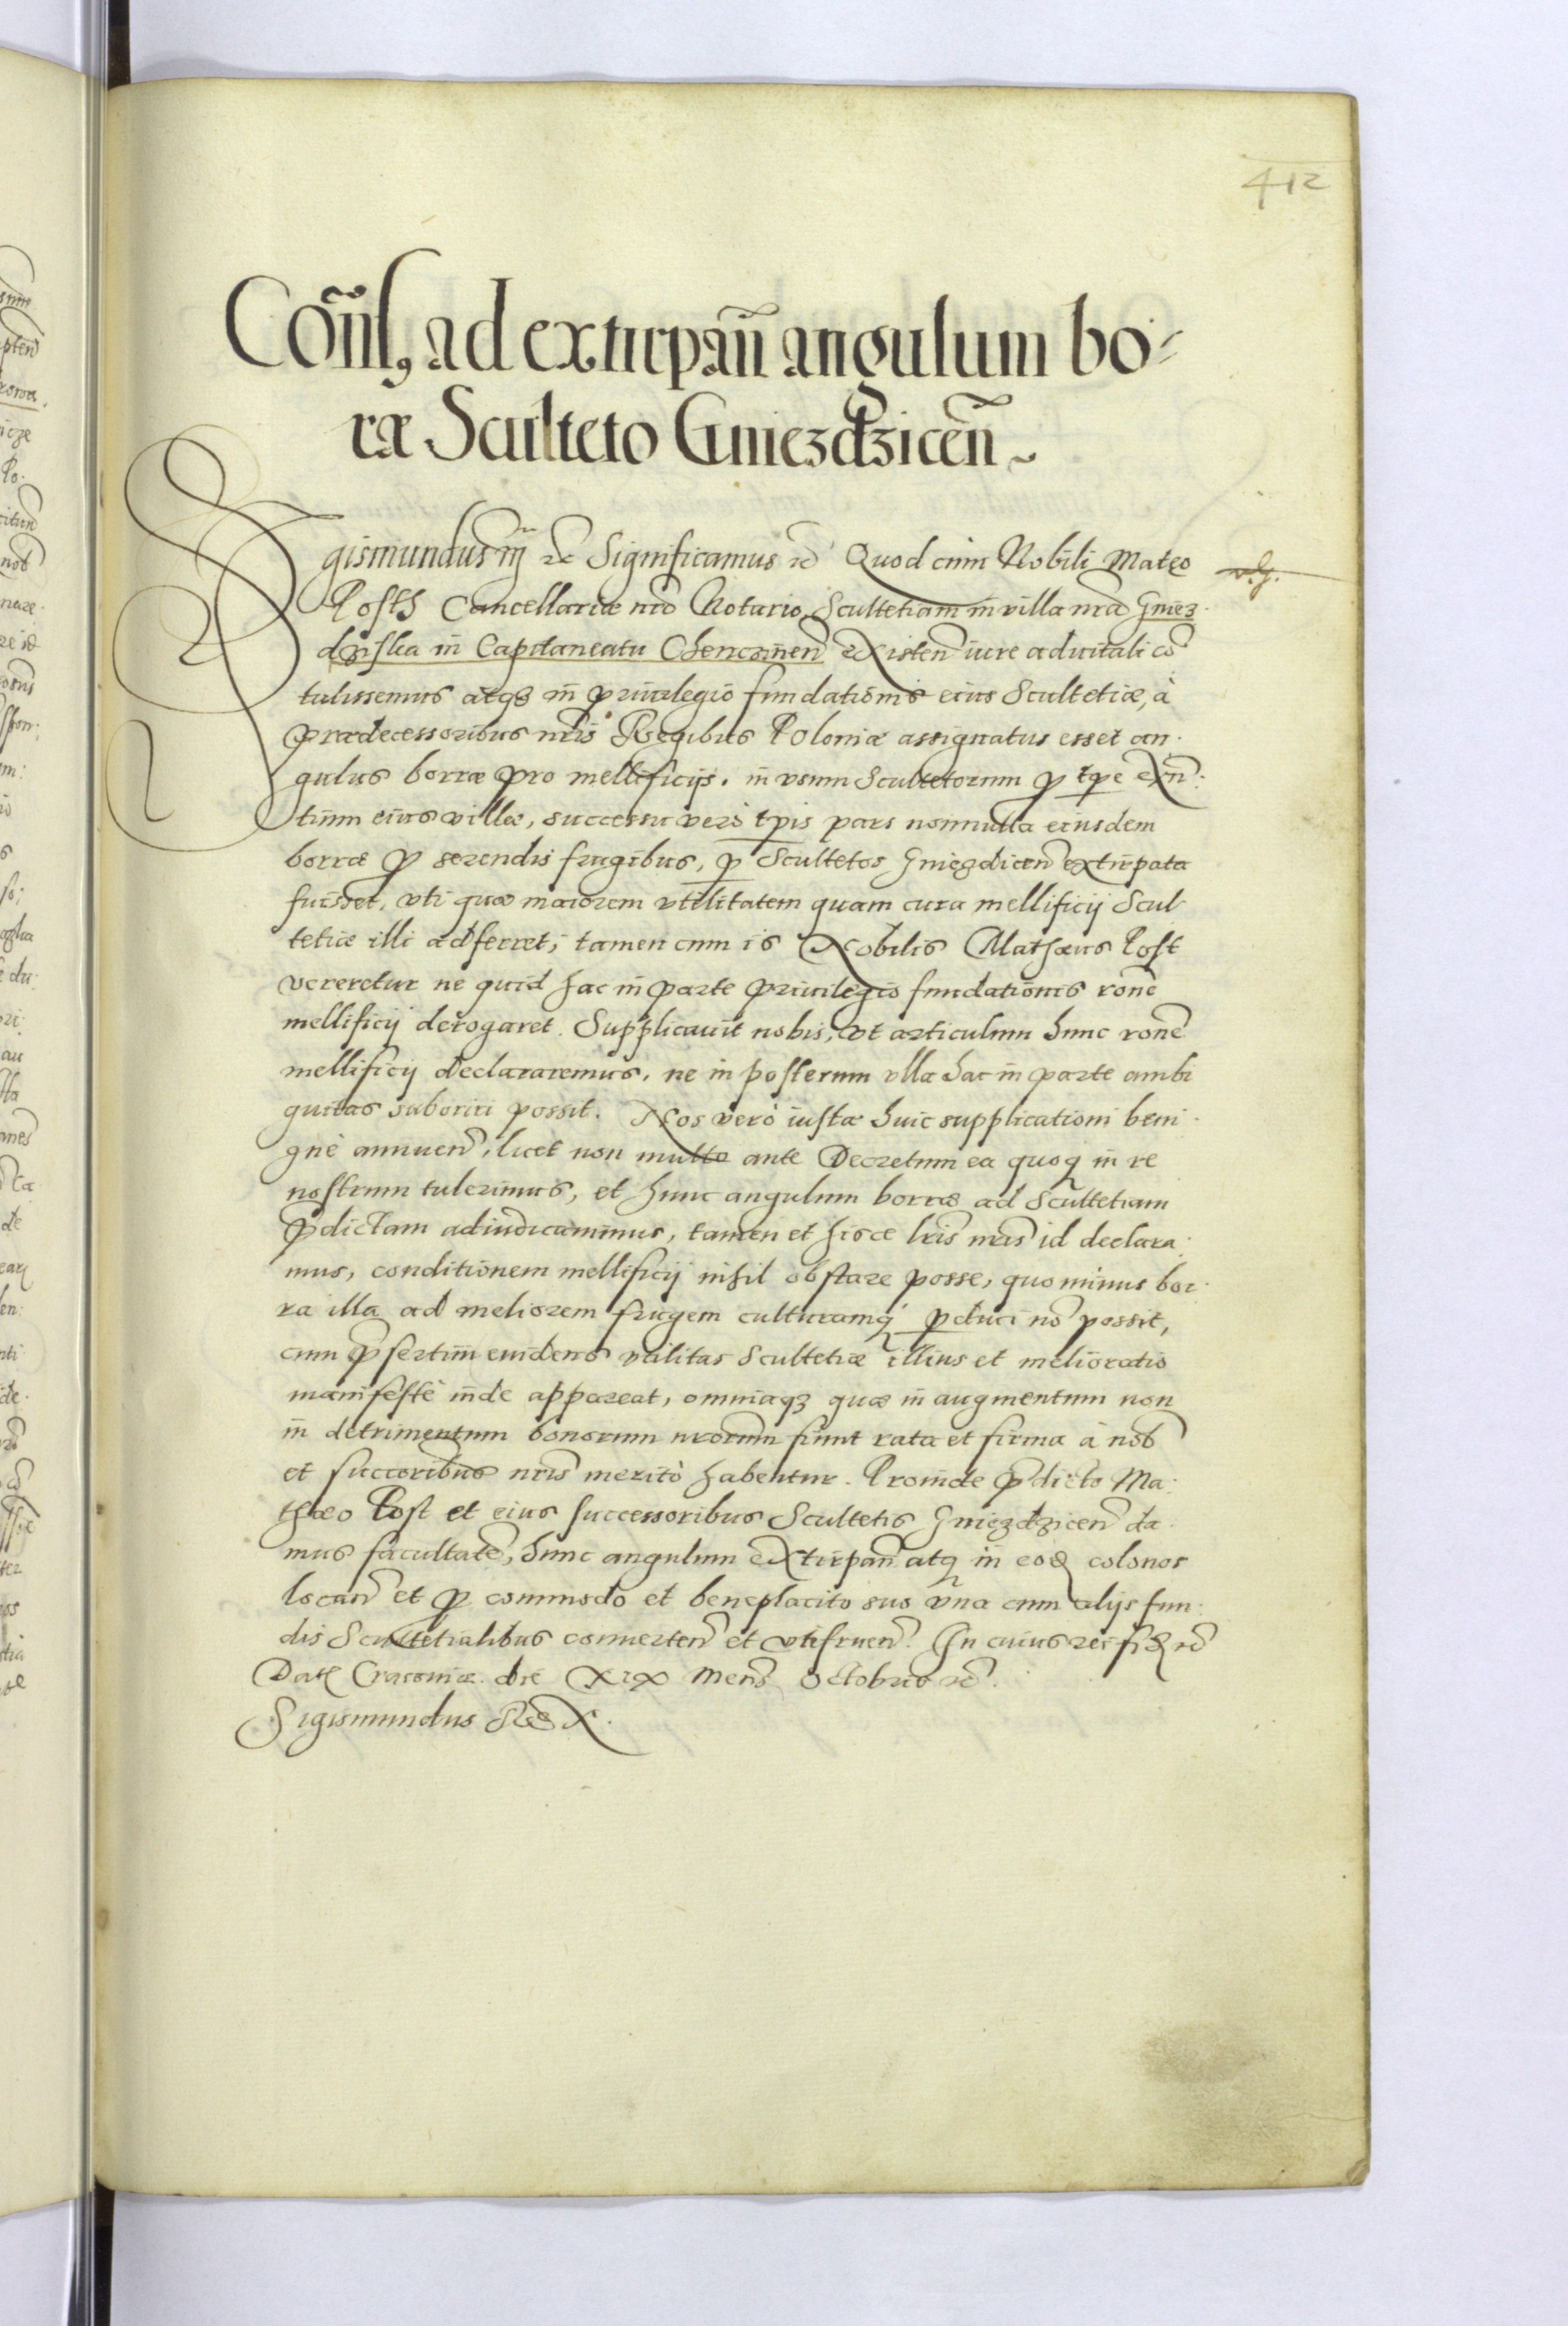 412
Cõns, ad extirpañ angulum bo-
ræ Sculteto Gniezdziceñ
Sigismundus III rc Significamus rc Quod cum Nobili Matęo
Posth Cancellariæ nrõ Notario Scultetiam in villa nrã Gniez-
dziska in Capitaneatu Chencineñ existeñ iure aduitali cõ
tulissemus atq3 in priuilegio fundationis eius Scultetiæ, à
Prædecessoribus nrĩs Regibus Poloniæ assignatus esset an-
gulus borræ pro mellificijs, in vsum Scultetorum p tpe exñ:
tium eius villæ, successu verò tpis pars nonnulla eiusdem
borræ p serendis frugibus, p Scultetos Gniezdiceñ extirpata
fuisset, vti quæ maiorem vtilitatem quam cura mellificij Scul-
tetiæ illi adferret, tamen cum is Nobilis Mathæus Post
vereretur ne quid hac in parte priuilegio fundationis ronẽ
mellificij derogaret. Supplicauit nobis, vt articulum hunc ronẽ
mellificij declararemus, ne in posterum vlla hac in parte ambi
guitas suboriri possit. Nos verò iustæ huic supplicationi beni-
gnè annueñ, licet non multo ante Decretum ea quoq in re
nostrum tulerimus, et hunc angulum borræ ad Scultetiam
pdictam adiudicauimus, tamen et hisce lrĩs nrĩs id declara-
mus, conditionem mellificij nihil obstare posse, quominus bor-
ra illa ad meliorem frugem culturamq pduci nõ possit,
cum psertim euidens vtilitas Scultetiæ illius et melioratio
manifestè inde appareat, omniaq3 quæ in augmentum non
in detrimentum bonorum nrorum fiunt rata et firma à nob
et succoribus nrĩs meritò habentur. Proinde pdicto Ma-
thæo Post et eius successoribus Scultetis Gniezdziceñ da-
mus facultatẽ, hunc angulum extirpañ atq in eod colonos
locañ et p commodo et beneplacito suo vna cum alijs fun-
dis Scultetialibus conuerteñ et vtifrueñ. In cuius rei fid rc
Dat Cracoviæ die XIX Mens Octobris rc.
Sigismundus Rex.